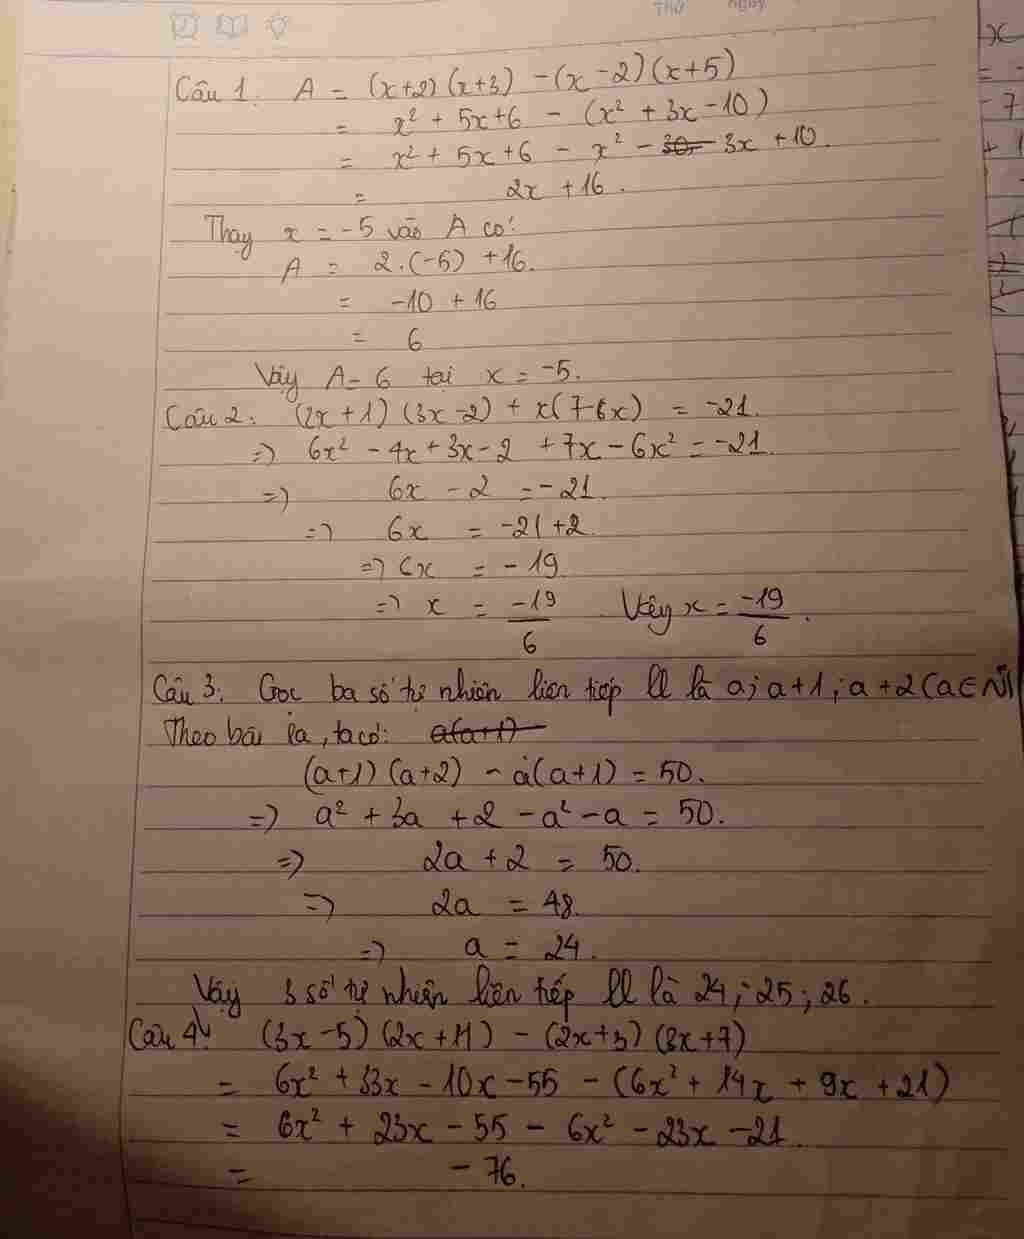 Thứ Ngày
Câu 1. A = (x+2)(x+3) - (x-2)(x+5)
= x² + 5x+6 - (x² + 3x - 10)
= x² + 5x+6 - x² - 3x +10.
= 2x +16.
Thay x = -5 vào A có:
A = 2.(-5) +16.
= -10 + 16
= 6
Vậy A = 6 tại x = -5.
Câu 2: (2x+1)(3x-2) + x(7-6x) = -21.
=> 6x² - 4x + 3x - 2 + 7x - 6x² = -21.
=> 6x - 2 = -21.
=> 6x = -21+2.
=> 6x = -19.
=> x = -19/6 Vậy x = -19/6.
Câu 3: Gọi ba số tự nhiên liên tiếp ll là a; a+1; a+2 (a∈N)
Theo bài ra, ta có: a(a+1)
(a+1)(a+2) - a(a+1) = 50.
=> a² + 3a + 2 - a² - a = 50.
=> 2a + 2 = 50.
=> 2a = 48.
=> a = 24.
Vậy 3 số tự nhiên liên tiếp ll là 24; 25; 26.
Câu 4: (3x-5)(2x+11) - (2x+3)(3x+7)
= 6x² + 33x - 10x - 55 - (6x² + 14x + 9x + 21)
= 6x² + 23x - 55 - 6x² - 23x - 21.
= - 76.